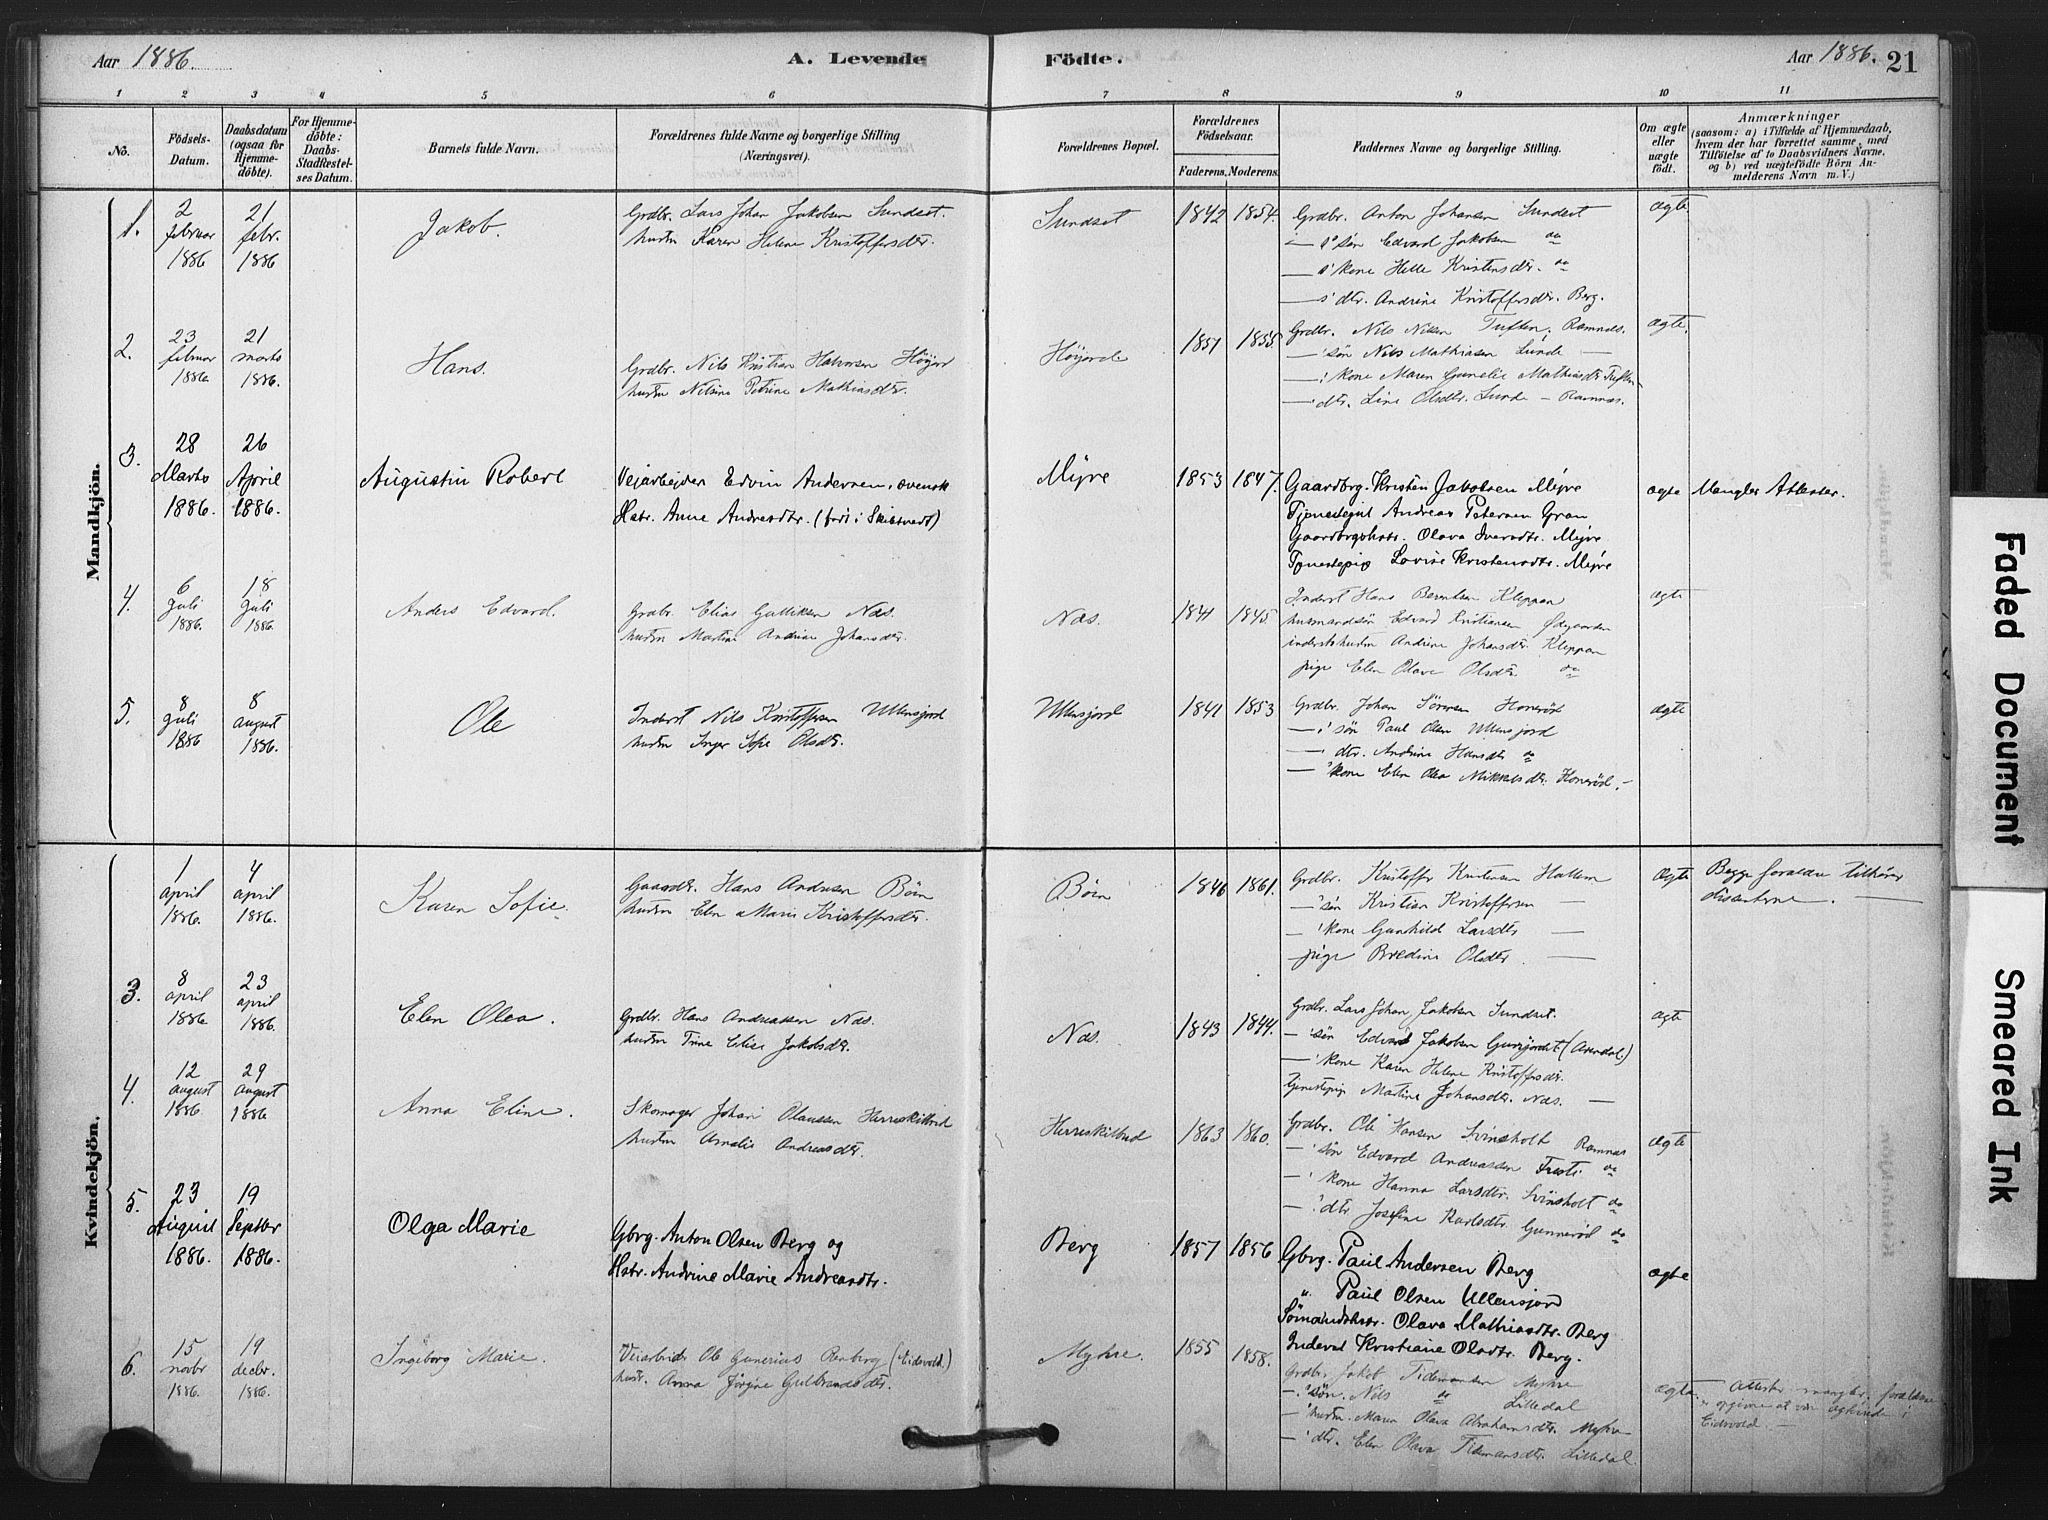 Aar 1886.
A. Levende Födte.
Aar 1886. 21
1 2 3 4 5 6 7 8 9 10 11
No.
Födsels-
Datum.
Daabsdatum
(ogsaa for
Hjemme-
döbte).
For Hjemme-
döbte:
Daabs-
Stadfæstel-
ses Datum.
Barnets fulde Navn.
Forældrenes fulde Navne og borgerlige Stilling
(Næringsvei).
Forældrenes Bopæl.
Forældrenes
Födselsaar.
Faderens. Moderens.
Faddernes Navne og borgerlige Stilling.
Om ægte
eller
uægte
födt.
Anmærkninger
(saasom: a) i Tilfælde af Hjemmedaab,
hvem der har forrettet samme, med
Tilföielse af to Daabsvidners Navne,
og b) ved uægtefödte Börn An-
melderens Navn m. V.)
Mandkjön.
1.
2
februar
1886
21
febr.
1886
Jakob.
Grdbr. Lars Johan Jakobsen Sundset.
hustru Karen Helene Kristoffersdtr.
Sundset
1842 1854.
Grdbr. Anton Johansen Sundset
— s' søn Edvard Jakobsen do
— s' kone Helle Kristensdtr. do
— s' dtr. Andrine Kristoffersdtr. Berg.
ægte.
2.
23
februar
1886.
21
marts
1886.
Hans.
Grdbr. Nils Kristian Halvorsen Höijord
hustru Nilsine Petrine Mathiasdtr.
Höijorde
1851 1855.
Grdbr. Nils Nilsen Tuften, Ramnæs.
— ' søn Nils Mathiasen Lunde —
— ' kone Maren Gunelie Mathiasdtr Tuften
— ' dtr. Line Olsdtr. Lunde — Ramnæs.
ægte.
3.
28
Marts
1886.
26
April
1886.
Augustin Robert
Vejarbejder Edvin Andersen, svensk
Hstr. Anne Andreasdtr. (født i Skibtvedt)
Mijre
1853 1847.
Gaardbrg. Kristen Jakobsen Mijre
Tjenestegut Andreas Petersen Gran
Gaardbrgshstr. Olava Iversdtr. Mijre
Tjenestepige Lovise Kristensdtr. Mijre
ægte
Mangler Attester.
4.
6
Juli
1886.
18
Juli
1886.
Anders Edvard.
Grdbr. Elias Gulliksen Næs.
hustru Martine Andrine Johansdtr.
Næs.
1841 1845
Inderst Hans Berntsen Kleppan
husmandssøn Edvard Kristiansen Ødegaarden
inderstshustru Andrine Johansdtr. Kleppan
pige Elen Olave Olsdtr do
ægte
5.
8
Juli
1886
8
august
1886.
Ole
Inderst Nils Kristoffersen Ullensjord
hustru Inger Sofie Olsdtr.
Ullensjord
1841 1853
Grdbr. Johan Sörensen Honeröd
— ' søn Paul Olsen Ullensjord
— ' dtr. Andrine Hansdtr do
— ' kone Elen Olea Mikkelsdtr. Honeröd. —
ægte
Kvindekjön.
1
april
1886.
4
april
1886.
Karen Sofie.
Gaardbr. Hans Andersen Böin
hustru Elen Marie Kristoffersdtr.
Böin
1846 1861.
Grdbr. Kristoffer Kristensen Hallem
— ' søn Kristian Kristoffersen —
— ' kone Gunhild Larsdtr —
— pige Bredine Olsdtr. —
ægte
Begge forældre tilhører
dissenterne. —
3.
8
april
1886
23
april
1886.
Elen Olea.
Grdbr. Hans Andreassen Næs.
hustru Trine Elise Jakobsdtr.
Næs.
1843 1844.
Grdbr. Lars Johan Jakobsen Sundset.
— ' søn Edvard Jakobsen (Arendal)
— ' kone Karen Helene Kristoffersdtr.
Tjenestepig Martine Johansdtr. Næs. —
ægte
4.
12
august
1886.
29
august
1886
Anna Eline.
Skomager Johan Olaussen Herreskilbred
hustru Amalie Andreasdtr.
Herreskilbred
1863 1860.
Grdbr. Ole Hansen Svinsholt Ramnæs
— ' søn Edvard Andreassen Fresti do
— ' kone Hanna Larsdtr. Svinsholt do
— ' dtr Josefine Karlsdtr. Gunneröd do
ægte
5.
23
August
1886.
19
Septbr
1886.
Olga Marie
Gbrg. Anton Olsen Berg og
Hstr. Andrine Marie Andreasdtr.
Berg
1857 1856
Gbrg. Paul Andersen Berg
" Paul Olsen Ullensjord
Sømandshstr. Olava Mathiasdtr. Berg
Inderst Kristiane Olsdtr. Berg.
ægte
6.
15
novbr
1886.
19
decbr.
1886.
Ingeborg Marie.
Veiarbeider Ole Gunerius Renberg (Eidsvold.)
hustr. Anna Jörgine Gulbrandsdtr.
Myhre.
1855 1858.
Grdbr. Jakob Tidemansen Myhre
— ' søn. Nils do Lilledal
— ' hustru. Maren Olava Abrahamsdtr. Myhre
— ' dtr. Elen Olava Tidemansdtr. Lilledal.
ægte.
Attester mangler, forældrene
opgive at være ægteviede i
Eidsvold. —
Faded Document
Smeared Ink